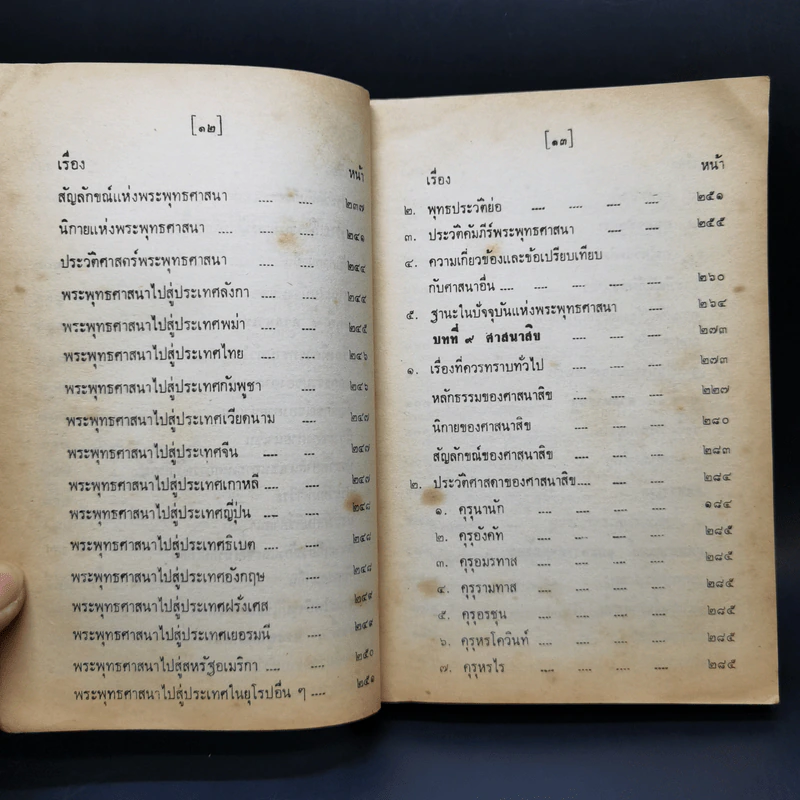 [๑๒]
เรื่อง หน้า
สัญลักขณ์แห่งพระพุทธศาสนา .... .... ๒๓๗
นิกายแห่งพระพุทธศาสนา .... .... ๒๔๑
ประวัติศาสตร์พระพุทธศาสนา .... .... ๒๔๔
พระพุทธศาสนาไปสู่ประเทศลังกา .... .... ๒๔๔
พระพุทธศาสนาไปสู่ประเทศพม่า .... .... ๒๔๕
พระพุทธศาสนาไปสู่ประเทศไทย .... .... ๒๔๖
พระพุทธศาสนาไปสู่ประเทศกัมพูชา .... ๒๔๖
พระพุทธศาสนาไปสู่ประเทศเวียดนาม .... ๒๔๗
พระพุทธศาสนาไปสู่ประเทศจีน .... .... ๒๔๗
พระพุทธศาสนาไปสู่ประเทศเกาหลี .... .... ๒๔๗
พระพุทธศาสนาไปสู่ประเทศญี่ปุ่น .... .... ๒๔๘
พระพุทธศาสนาไปสู่ประเทศธิเบต .... .... ๒๔๘
พระพุทธศาสนาไปสู่ประเทศอังกฤษ .... ๒๔๘
พระพุทธศาสนาไปสู่ประเทศฝรั่งเศส .... ๒๔๙
พระพุทธศาสนาไปสู่ประเทศเยอรมนี .... ๒๔๙
พระพุทธศาสนาไปสู่สหรัฐอเมริกา .... .... ๒๕๐
พระพุทธศาสนาไปสู่ประเทศในยุโรปอื่น ๆ .... ๒๕๑
[๑๓]
เรื่อง หน้า
๒. พุทธประวัติย่อ .... .... .... .... ๒๕๑
๓. ประวัติคัมภีร์พระพุทธศาสนา .... .... ๒๕๕
๔. ความเกี่ยวข้องและข้อเปรียบเทียบ
กับศาสนาอื่น .... .... .... .... ๒๖๐
๕. ฐานะในปัจจุบันแห่งพระพุทธศาสนา .... ๒๖๔
บทที่ ๙ ศาสนาสิข .... .... ๒๗๓
๑. เรื่องที่ควรทราบทั่วไป .... .... .... ๒๗๓
หลักธรรมของศาสนาสิข .... .... .... ๒๒๗
นิกายของศาสนาสิข .... .... .... ๒๘๐
สัญลักขณ์ของศาสนาสิข .... .... .... ๒๘๓
๒. ประวัติศาสดาของศาสนาสิข .... .... .... ๒๘๔
๑. คุรุนานัก .... .... .... .... ๑๘๔
๒. คุรุอังคัท .... .... .... .... ๒๘๕
๓. คุรุอมรทาส .... .... .... .... ๒๘๕
๔. คุรุรามทาส .... .... .... .... ๒๘๕
๕. คุรุอรชุน .... .... .... .... ๒๘๕
๖. คุรุหรโควินท์ .... .... .... .... ๒๘๕
๗. คุรุหรไร .... .... .... .... ๒๘๕